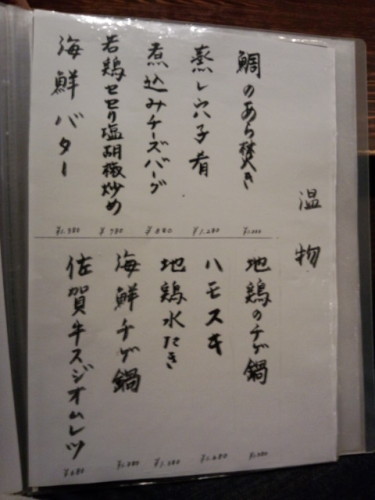 温物
鯛のあら焚き
¥1,000
蒸し穴子肴
¥1,280
煮込みチーズバーグ
¥880
若鶏セセリ塩胡椒炒め
¥780
海鮮バター
地鶏のチゲ鍋
ハモスキ
地鶏水たき
¥1,280
海鮮チゲ鍋
佐賀牛スジオムレツ